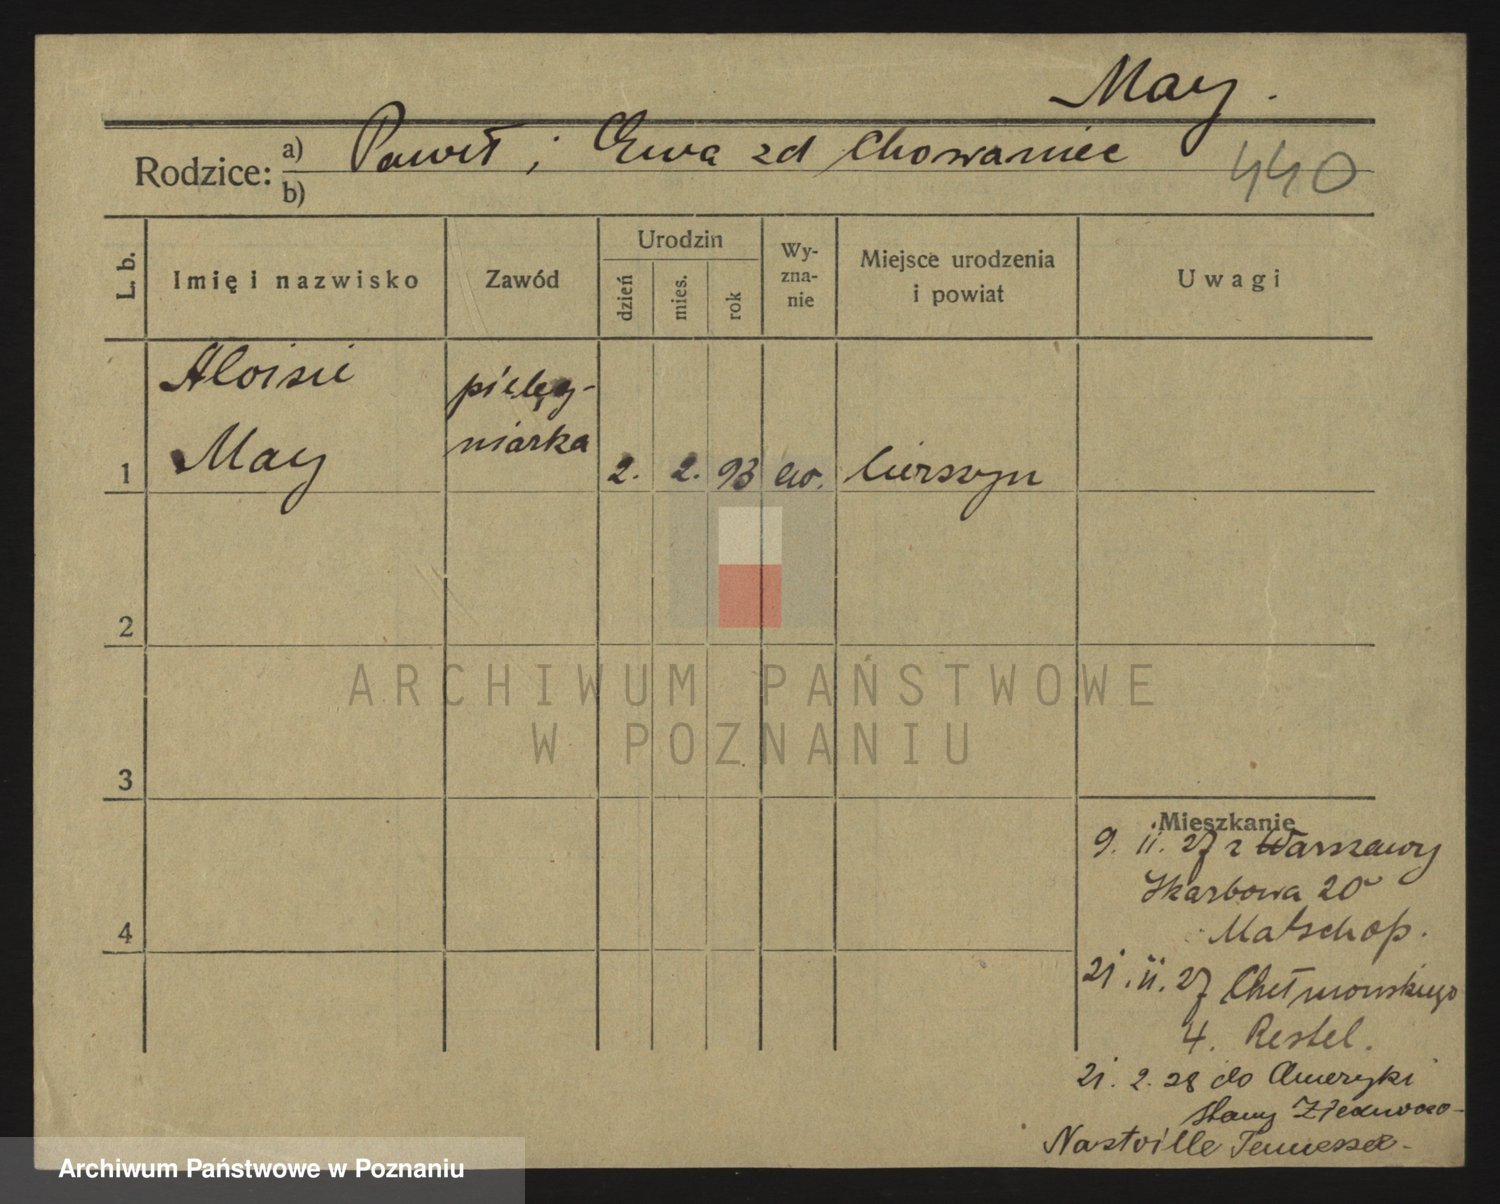 May.
Rodzice: a) Paweł i Ewa zd Chowaniec
b)
440
L. b.
Imię i nazwisko
Zawód
Urodzin
dzień
mies.
rok
Wy-
zna-
nie
Miejsce urodzenia
i powiat
Uwagi
Aloisie
May
pielęg-
niarka
1
2. 2. 93 ew. Cierszyn
2
ARCHIWUM PAŃSTWOWE
W POZNANIU
3
Mieszkanie
9. ii. 27 z Warszawy
Skarbowa 20
Matschop.
4
21. ii. 27 Chełmońskiego
4. Restel.
21. 2. 28 do Ameryki
Stany Zjednoczo-
Nastville Tennessee-
Archiwum Państwowe w Poznaniu